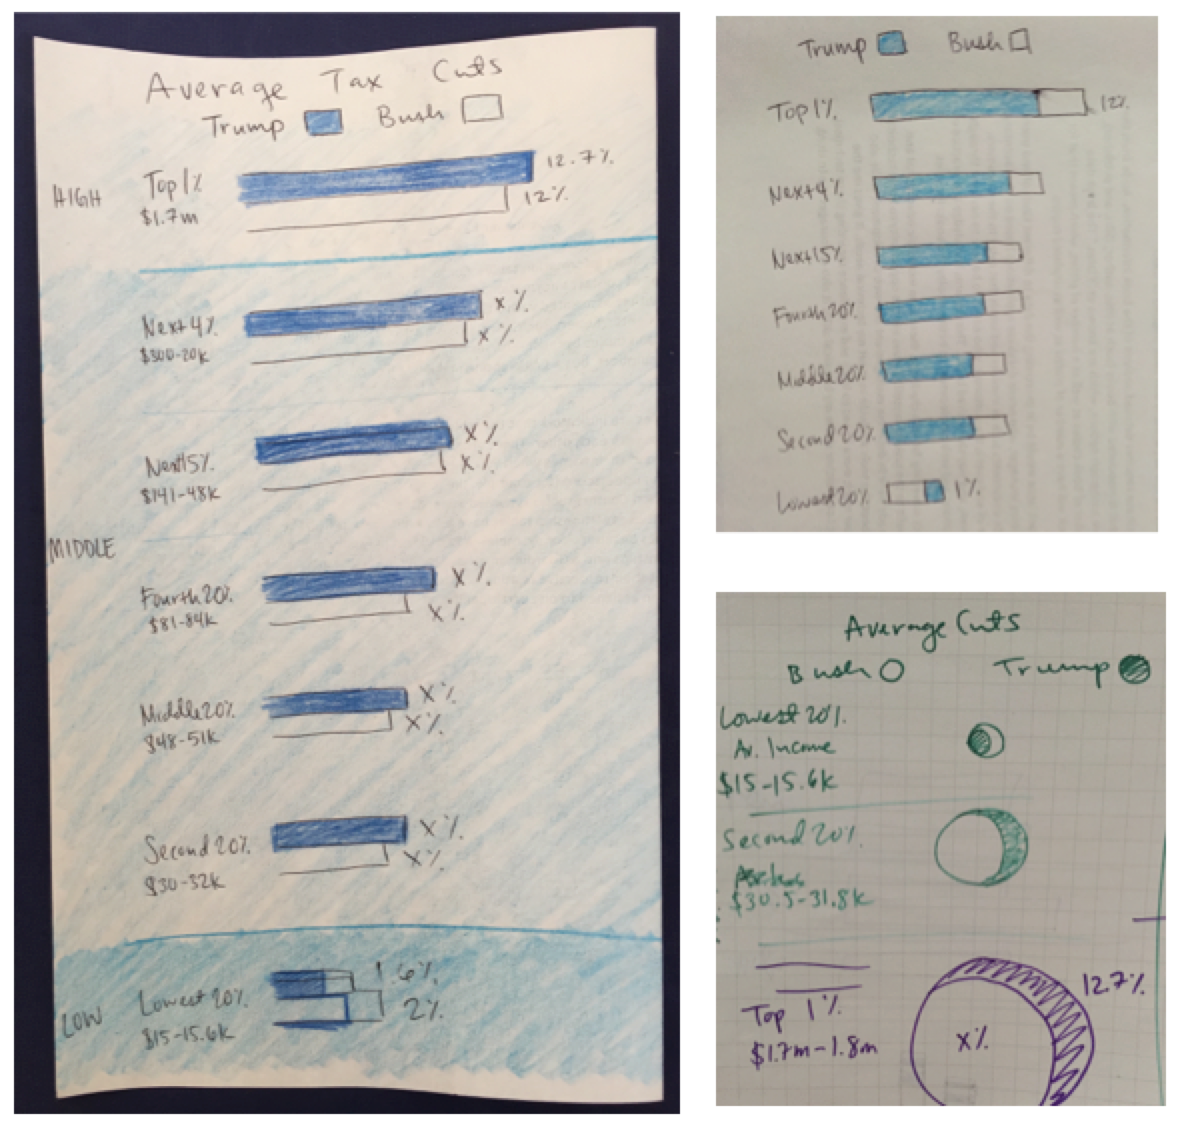 Average Tax Cuts
Trump Bush
HIGH
Top 1%
$1.7m
12.7%
12%
Next 4%
$300-20k
X%
X%
Next 15%
$141-48k
X%
X%
MIDDLE
Fourth 20%
$81-84k
X%
X%
Middle 20%
$48-51k
X%
X%
Second 20%
$30-32k
X%
X%
LOW
Lowest 20%
$15-15.6k
6%
2%
Trump Bush
Top 1% 12%
Next 4%
Next 15%
Fourth 20%
Middle 20%
Second 20%
Lowest 20% 1%
Average Cuts
Bush Trump
Lowest 20%
Av. Income
$15-15.6k
Second 20%
$30.5-31.8k
Top 1%
$1.7m-1.8m
X%
12.7%